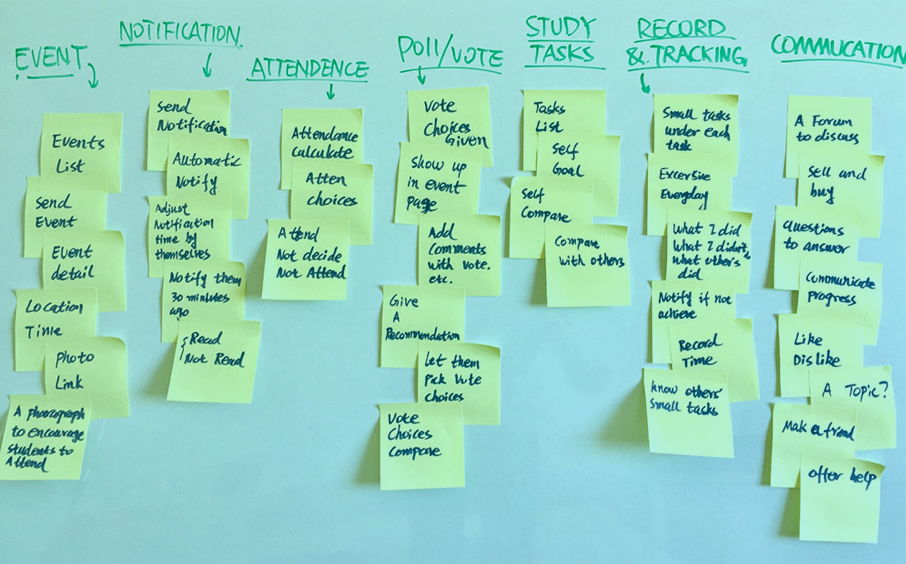 EVENT
Events
List
Send
Event
Event
detail
Location
Time
Photo
Link
A
to encourage
students to
Attend
NOTIFICATION
Send
Notification
Automatic
Notify
Adjust
Notification
time by
themselves
Notify them
30 minutes
ago
Read
Not Read
ATTENDENCE
Attendance
Calculate
Atten
choices
Attend
Not decide
Not Attend
POLL/VOTE
Vote
Choices
Given
Show up
in event
page
Add
Comments
with Vote.
etc.
Give
A
Recommendation
Let them
Pick Vote
choices
Vote
Choices
Compare
STUDY
TASKS
Tasks
List
Self
Goal
Self
Compare
Compare
with others
RECORD
& TRACKING
Small tasks
under each
task
Excersise
Everyday
What I did
What I didn't
what other's
did
Notify if not
achieve
Record
Time
know others'
Small tasks
COMMUCATION
A Forum
to discuss
Sell and
buy
Questions
to answer
Communicate
Progress
Like
Dislike
A Topic?
Make a friend
offer help